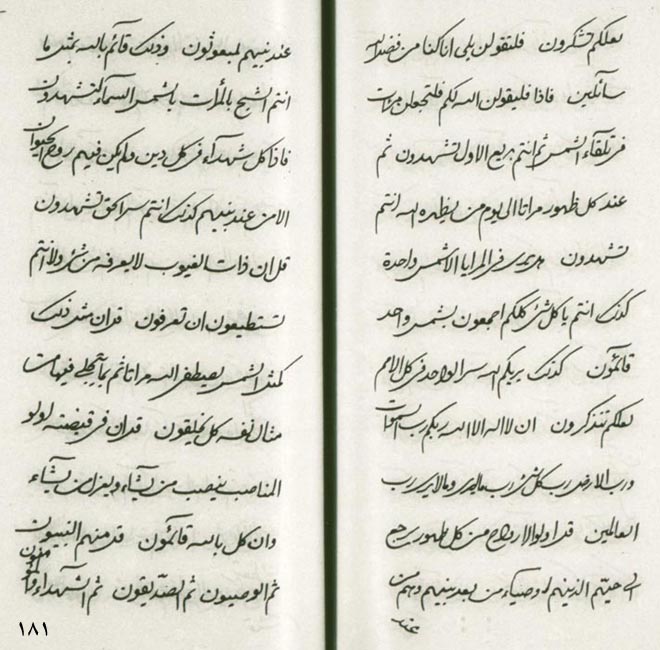 لعلكم تشكرون فلتقولن بلى انا كنا من فضل الله
سائلين فاذا فليقولن الله لكم فلتجعلن مرات
في تلقاء الشمس ثم انتم بربيع الاول لتشهدون ثم
عند كل ظهور مراتا الى يوم من يظهره الله انتم
تشهدون هل يرى في المرايا الا شمس واحدة
كذلك انتم يا كل شئ كلكم اجمعون بشمس واحد
قائمون كذلك يريكم الله سر الواحد في كل الامم
لعلكم تتذكرون ان لا اله الا الله ربكم رب السموات
ورب الارض رب كل شئ رب ما يرى وما لا يرى رب
العالمين قد اولو الارواح من كل ظهور يرجع
الى حيتم الذينهم اوصياء من بعد نبيهم وهم من
عند
عند نبيهم لمبعوثون وذلك قائم بالله بمثل ما
انتم الشبح بالمرات بالشمس السماء لتشهدون
فاذا كل شهداء في كل دين ولم يكن فيهم روح الحيوان
الا من عند نبيهم كذلك انتم سر الحق تشهدون
قل ان ذات الغيوب لا يعرفه من شئ ولا انتم
تستطيعون ان تعرفون قل ان مثل ذلك
كمثل الشمس يصطفى الله مراتا ثم بما تجلى فيها من
مثال نفسه كل يخلقون قل ان في قبضته اولو
المناصب ينصب من يشاء ويعزل من يشاء
وان كل بالله قائمون قل منهم النبيون
ثم الوصيون ثم الصديقون ثم الشهداء
١٨١